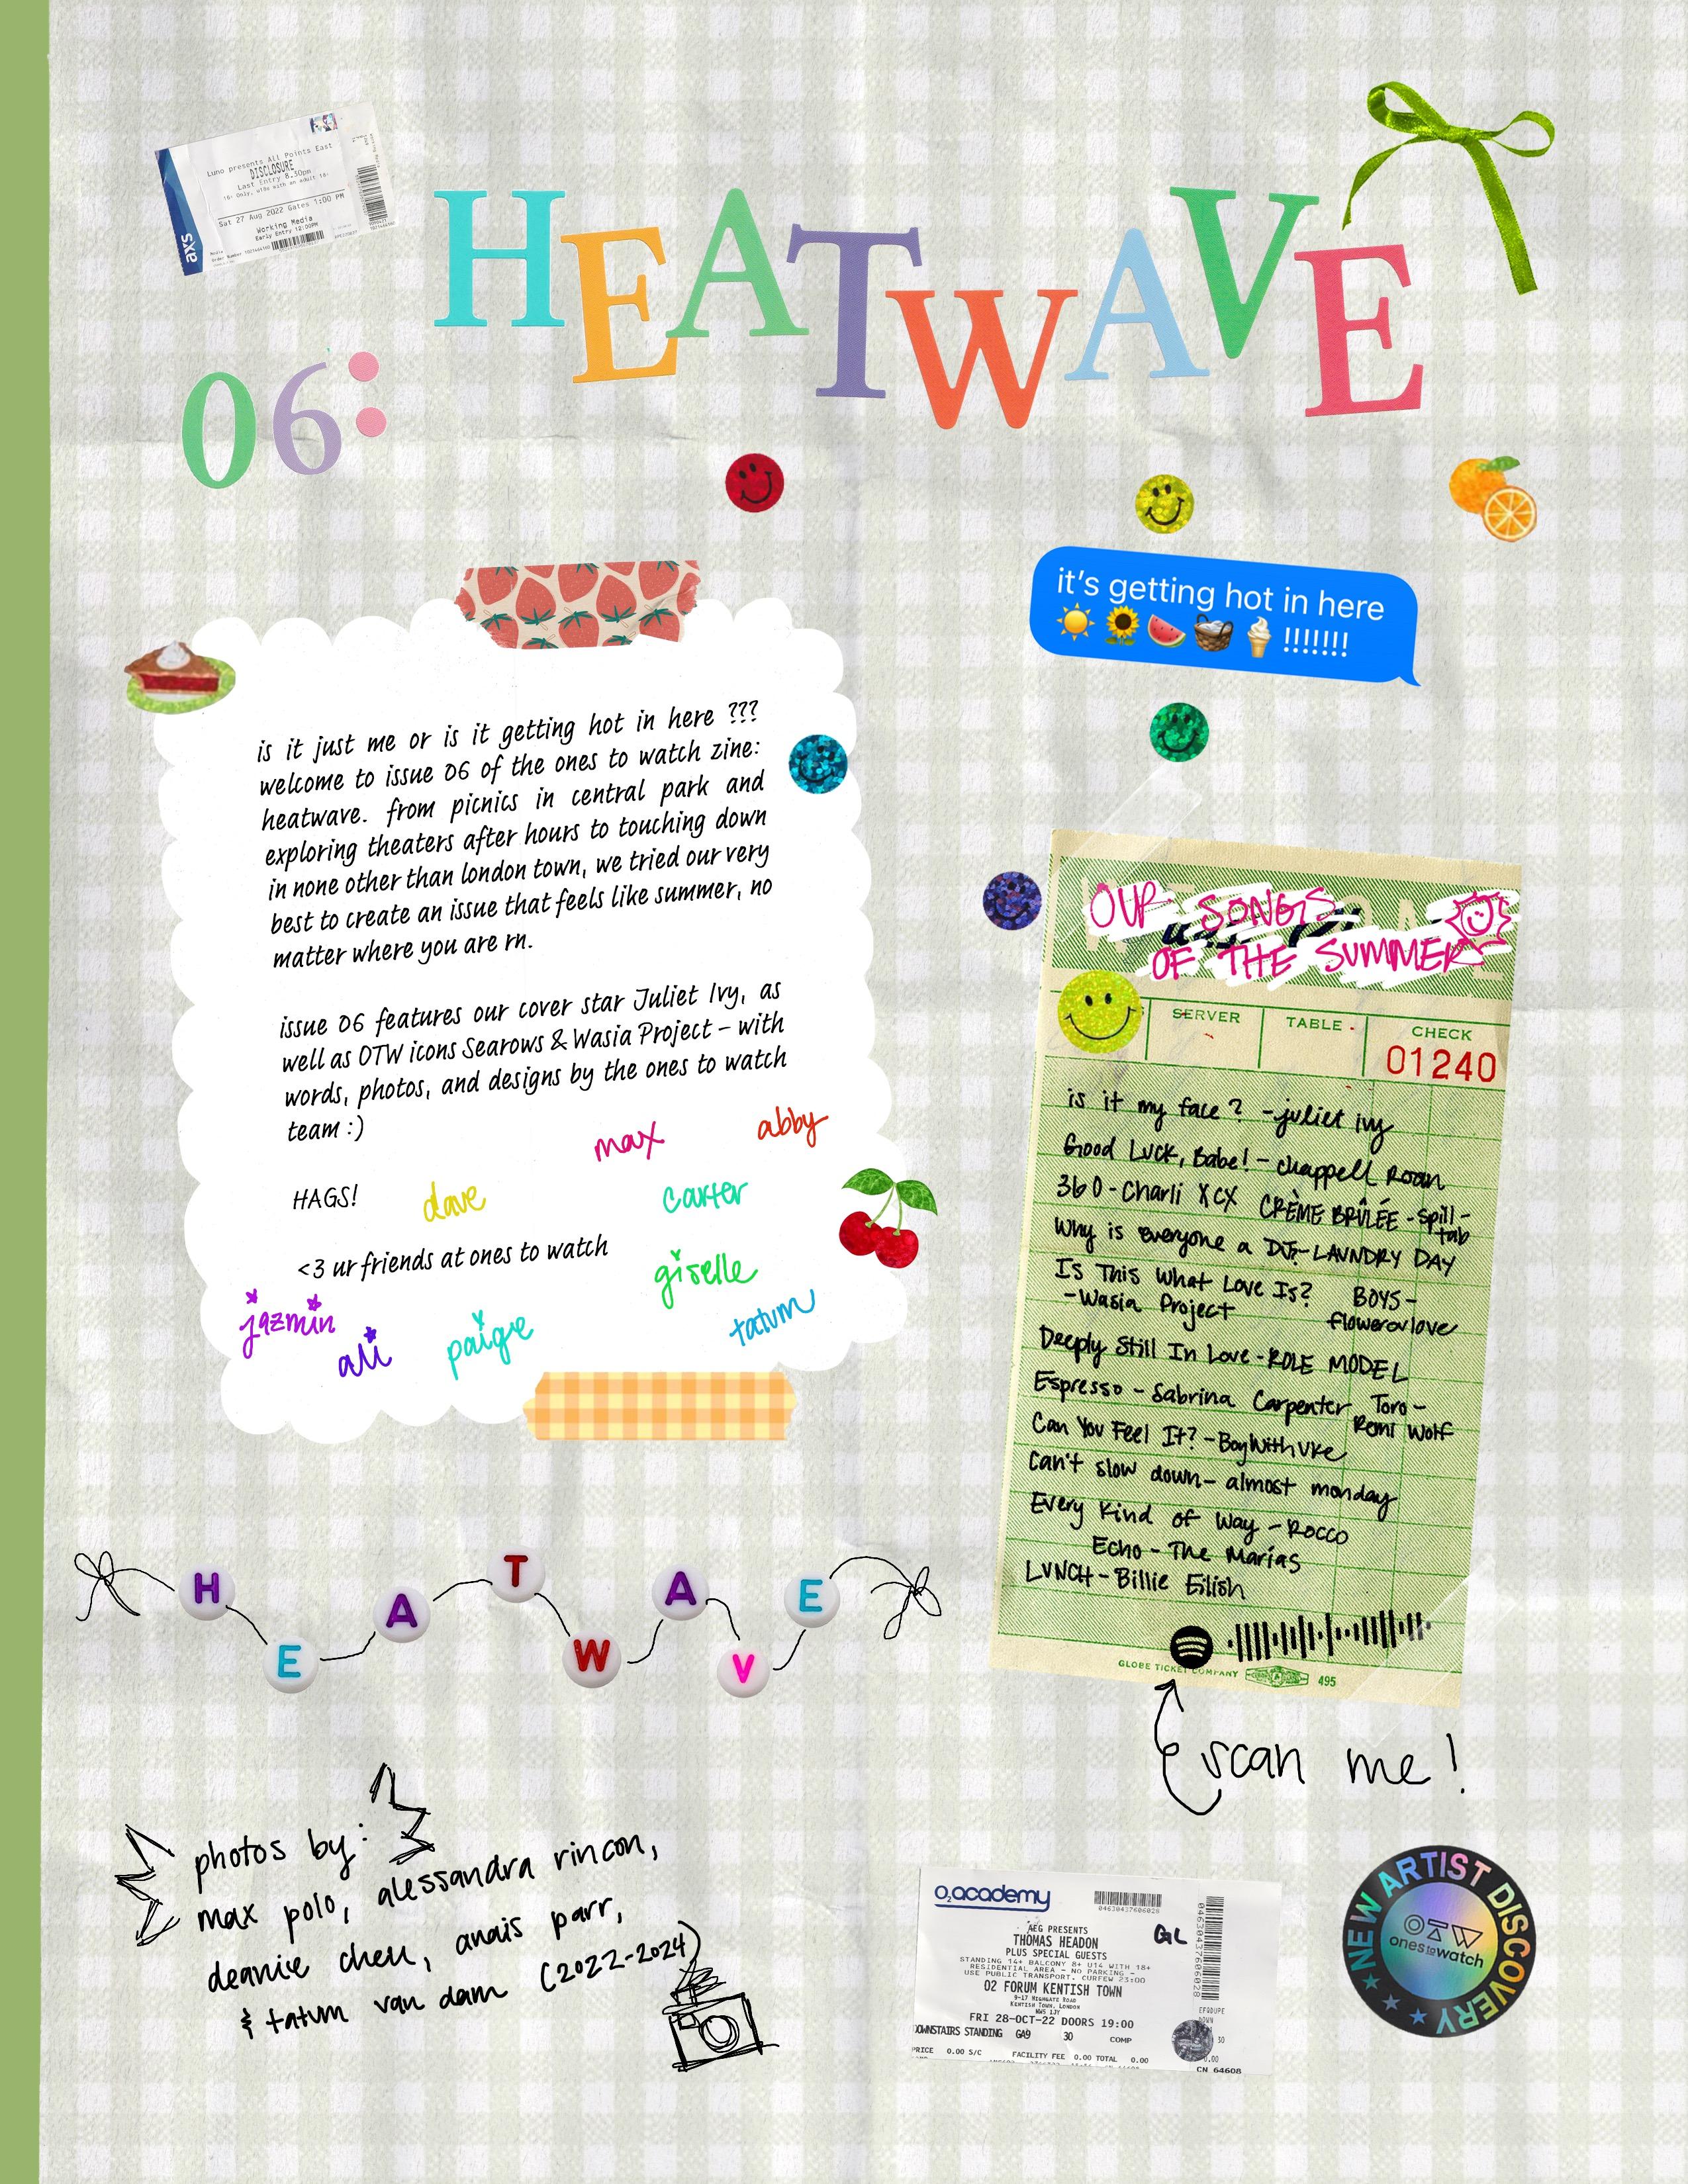 Luno presents All Points East
DISCLOSURE
Last Entry 8.30pm
Sat 27 Aug 2022 Gates 1:00 PM
Working Media
Early Entry 12:00PM
axs
HEATWAVE
06:
it's getting hot in here
☀️🌻🍉🧺🍦!!!!!!!
is it just me or is it getting hot in here ???
welcome to issue 06 of the ones to watch zine:
heatwave. from picnics in central park and
exploring theaters after hours to touching down
in none other than london town, we tried our very
best to create an issue that feels like summer, no
matter where you are rn.
issue 06 features our cover star Juliet Ivy, as
well as OTW icons Searows & Wasia Project – with
words, photos, and designs by the ones to watch
team :)
max
abby
HAGS!
dave
carter
<3 ur friends at ones to watch
giselle
jazmin
ali
paige
tatum
OUR SONGS
OF THE SUMMER
SERVER
TABLE
CHECK
01240
is it my face? - juliet ivy
Good Luck, Babe! - Chappell Roan
360 - Charli XCX
CRÈME BRÛLÉE - Spill-
tab
Why is everyone a DJ? - LAUNDRY DAY
Is This What Love Is?
- Wasia Project
BOYS -
flowerovlove
Deeply Still In Love - ROLE MODEL
Espresso - Sabrina Carpenter
Toro -
Remi Wolf
Can You Feel It? - BoyWithUke
Can't slow down - almost monday
Every Kind of Way - Rocco
Echo - The Marías
LUNCH - Billie Eilish
GLOBE TICKET COMPANY
495
scan me!
H E A T W A V E
photos by:
max polo, alessandra rincon,
deanie chen, anais parr,
& tatum van dam (2022-2024)
O2 academy
04630437606028
AEG PRESENTS
THOMAS HEADON
PLUS SPECIAL GUESTS
STANDING 14+ BALCONY 8+ U14 WITH 18+
RESIDENTIAL AREA - NO PARKING -
USE PUBLIC TRANSPORT. CURFEW 23:00
O2 FORUM KENTISH TOWN
9-17 Highgate Road
Kentish Town, London
NW5 1JY
FRI 28-OCT-22 DOORS 19:00
DOWNSTAIRS STANDING GA9 30 COMP
PRICE 0.00 S/C FACILITY FEE 0.00 TOTAL 0.00
CN 64608
GL
04630437606028
NEW ARTIST DISCOVERY
OTW
ones to watch